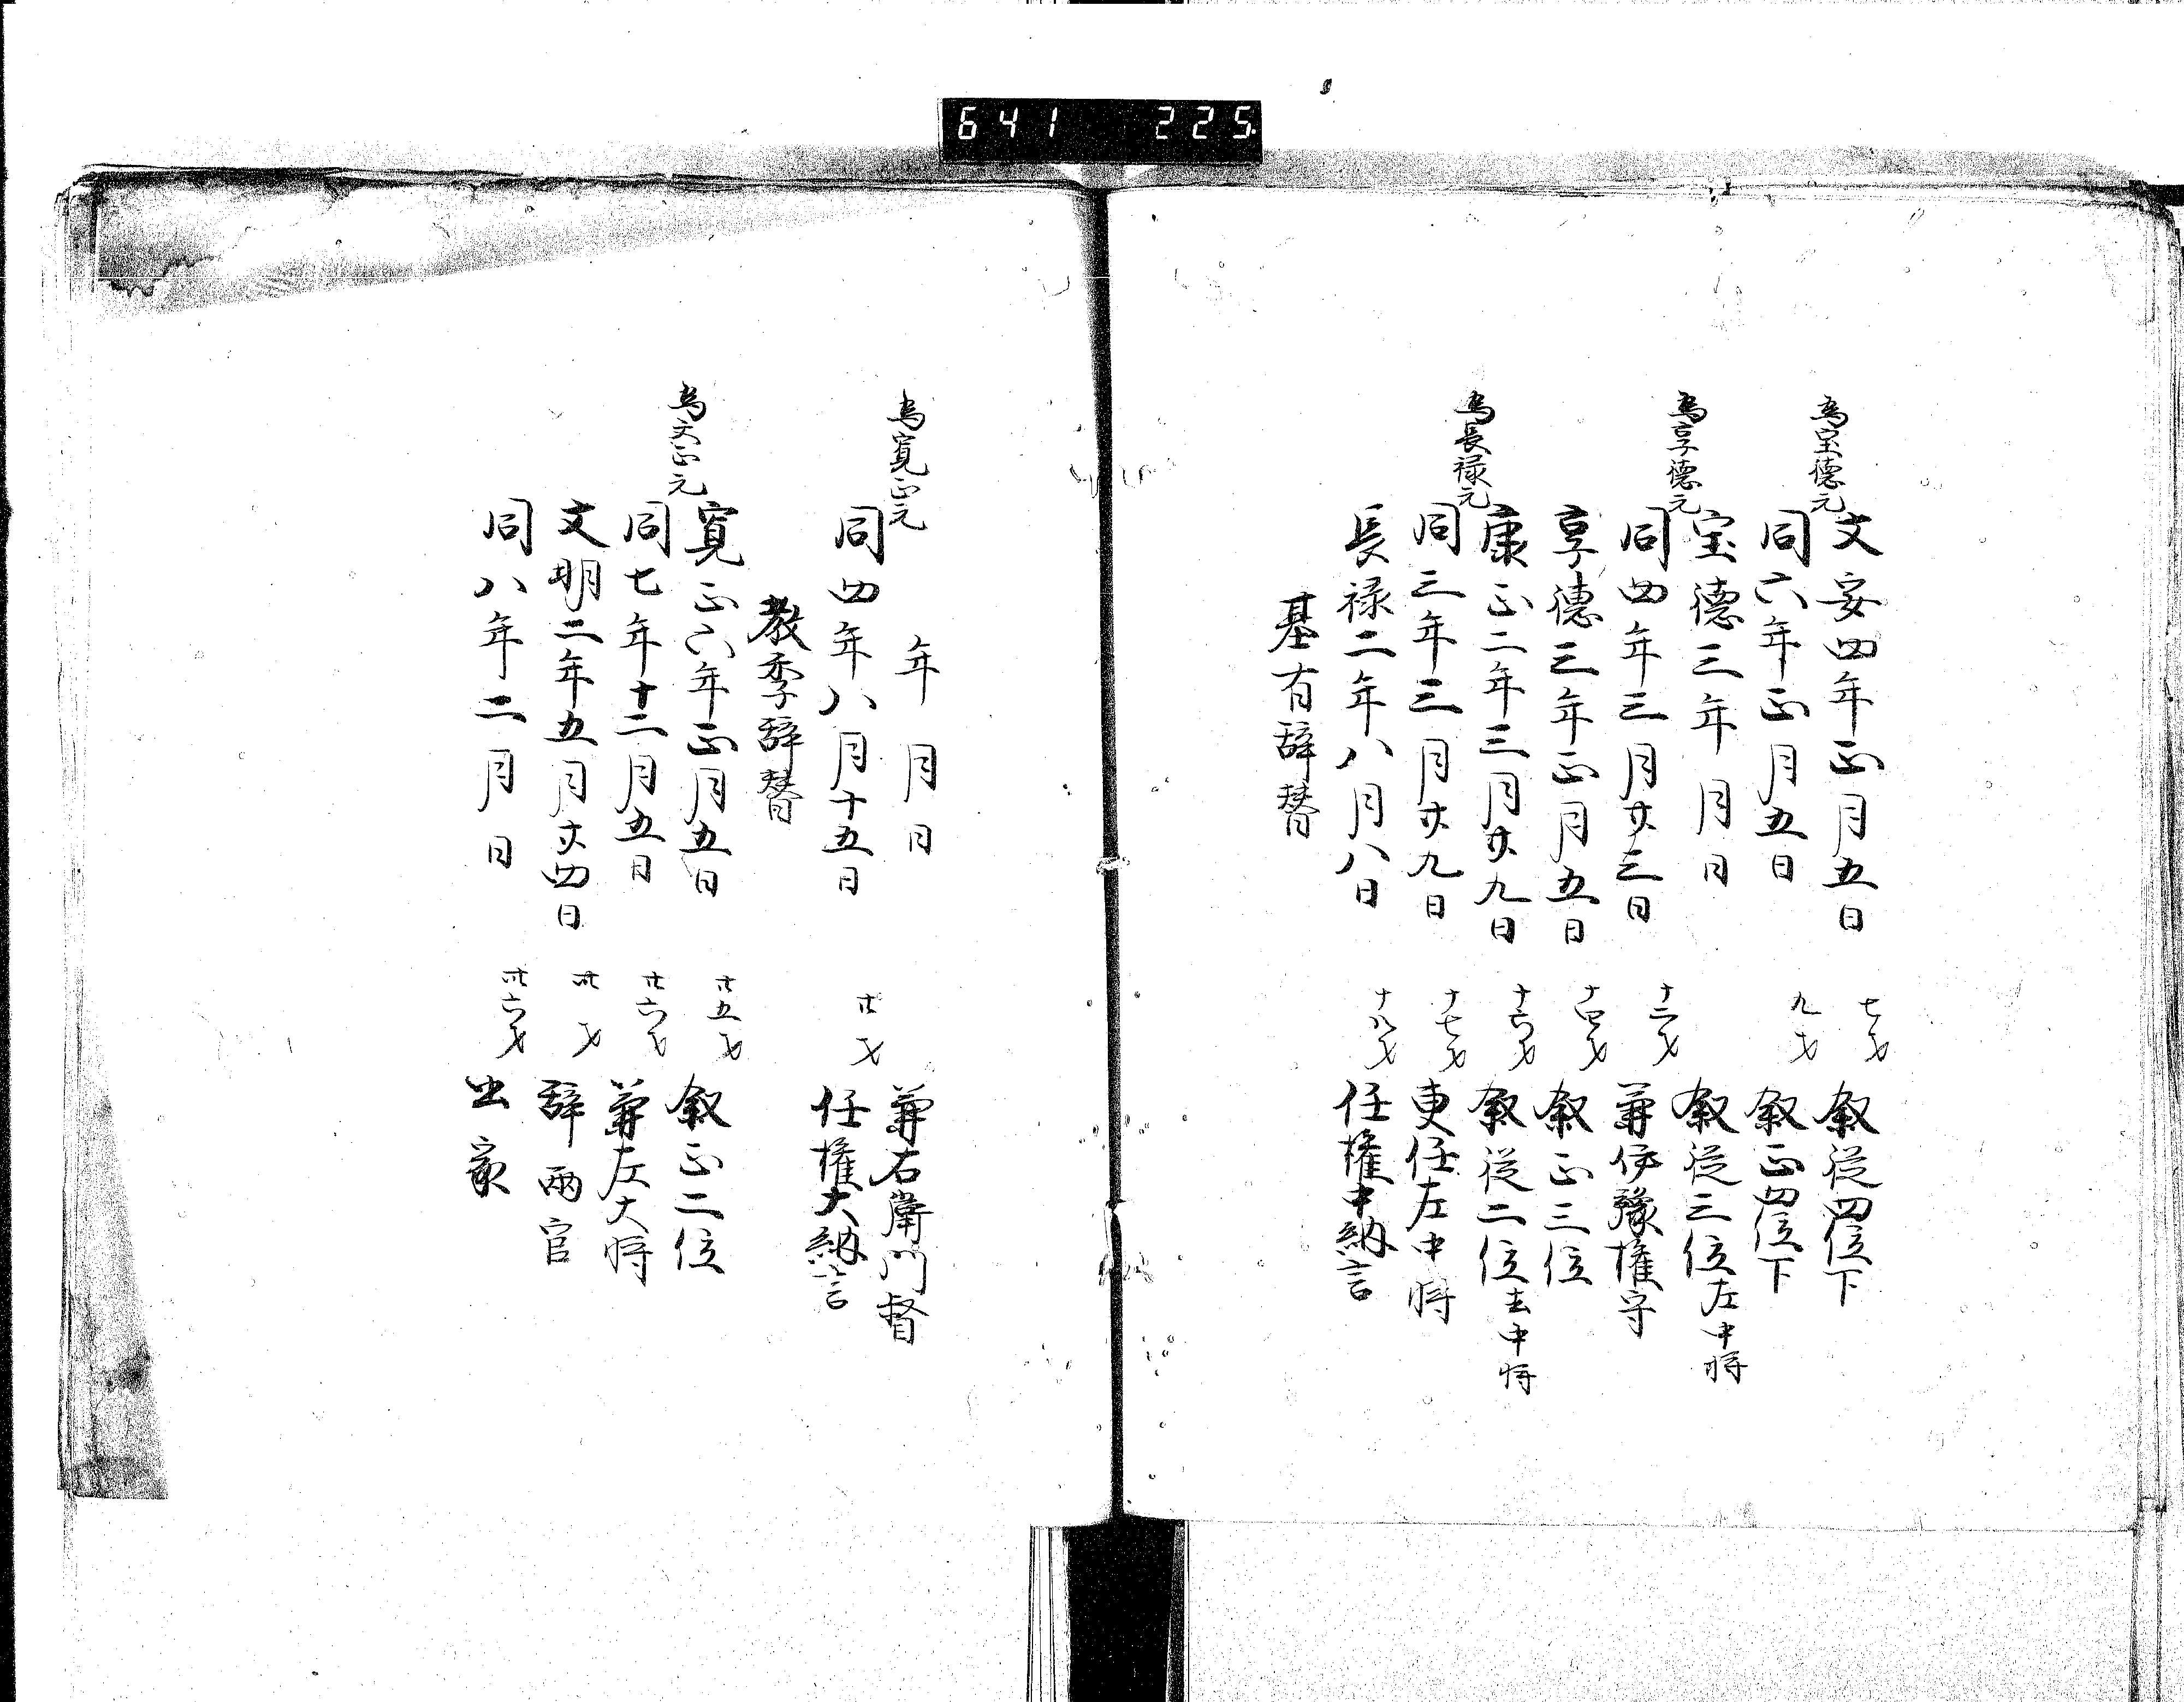 641 225
文安四年正月五日 七才 叙従四位下
為宝徳元
同六年正月五日 九才 叙正四位下
宝徳三年 月 日 叙従三位左中将
為享徳元
同四年三月廿三日 十二才 兼伊豫権守
享徳三年正月五日 十四才 叙正三位
康正二年三月廿九日 十六才 叙従二位去中将
為長禄元
同三年三月廿九日 十七才 更任左中将
長禄二年八月八日 十八才 任権中納言
基有辞替
年 月 日 兼右衛門督
為寛正元
同四年八月十五日 廿才 任権大納言
教季辞替
寛正六年正月五日 廿五才 叙正二位
為文正元
同七年十二月五日 廿六才 兼左大将
文明二年五月廿四日 卅才 辞両官
同八年二月 日 卅六才 出家